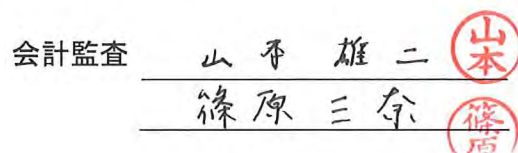 会計監査 山本 雄二 山本
篠原 三奈 篠原